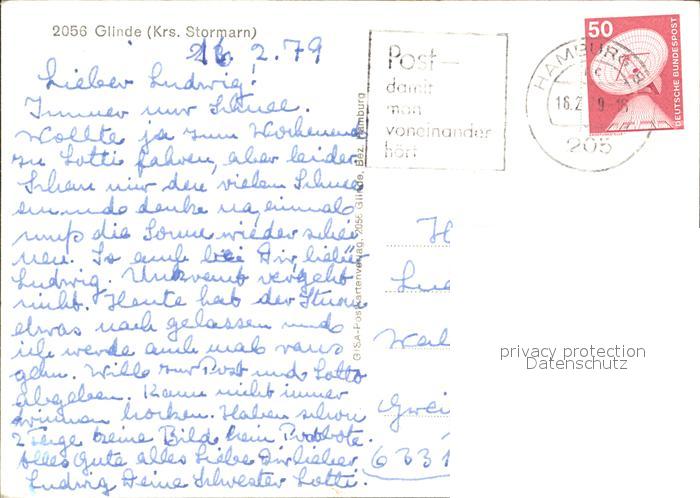 2056 Glinde (Krs. Stormarn)
16. 2. 79
Lieber Ludwig!
Immer nur Schnee.
Wollte ja zum Wochenend
zu Lotti fahren, aber leider
Schau mir den vielen Schnee
an und denke na, einmal
muß die Sonne wieder schei
nen. So auch bei Dir, lieber
Ludwig. Unkraut vergeht
nicht. Heute hat der Sturm
etwas nach gelassen und
ich werde auch mal raus
gehn. Will zur Post und Lotto
abgeben. Kann nicht immer
drinnen hocken. Haben schon
2 Tage keine Bild kein
Alles Gute alles Liebe Dir lieber
Ludwig Deine Schwester Lotti.
GISA-Postkartenverlag, 2056 Glinde, Bez. Hamburg
Post-
damit
man
voneinander
hört
HAMBURG
16.2
205
50
DEUTSCHE BUNDESPOST
H
Lu
Wal
Zwei
6331
privacy protection
Datenschutz